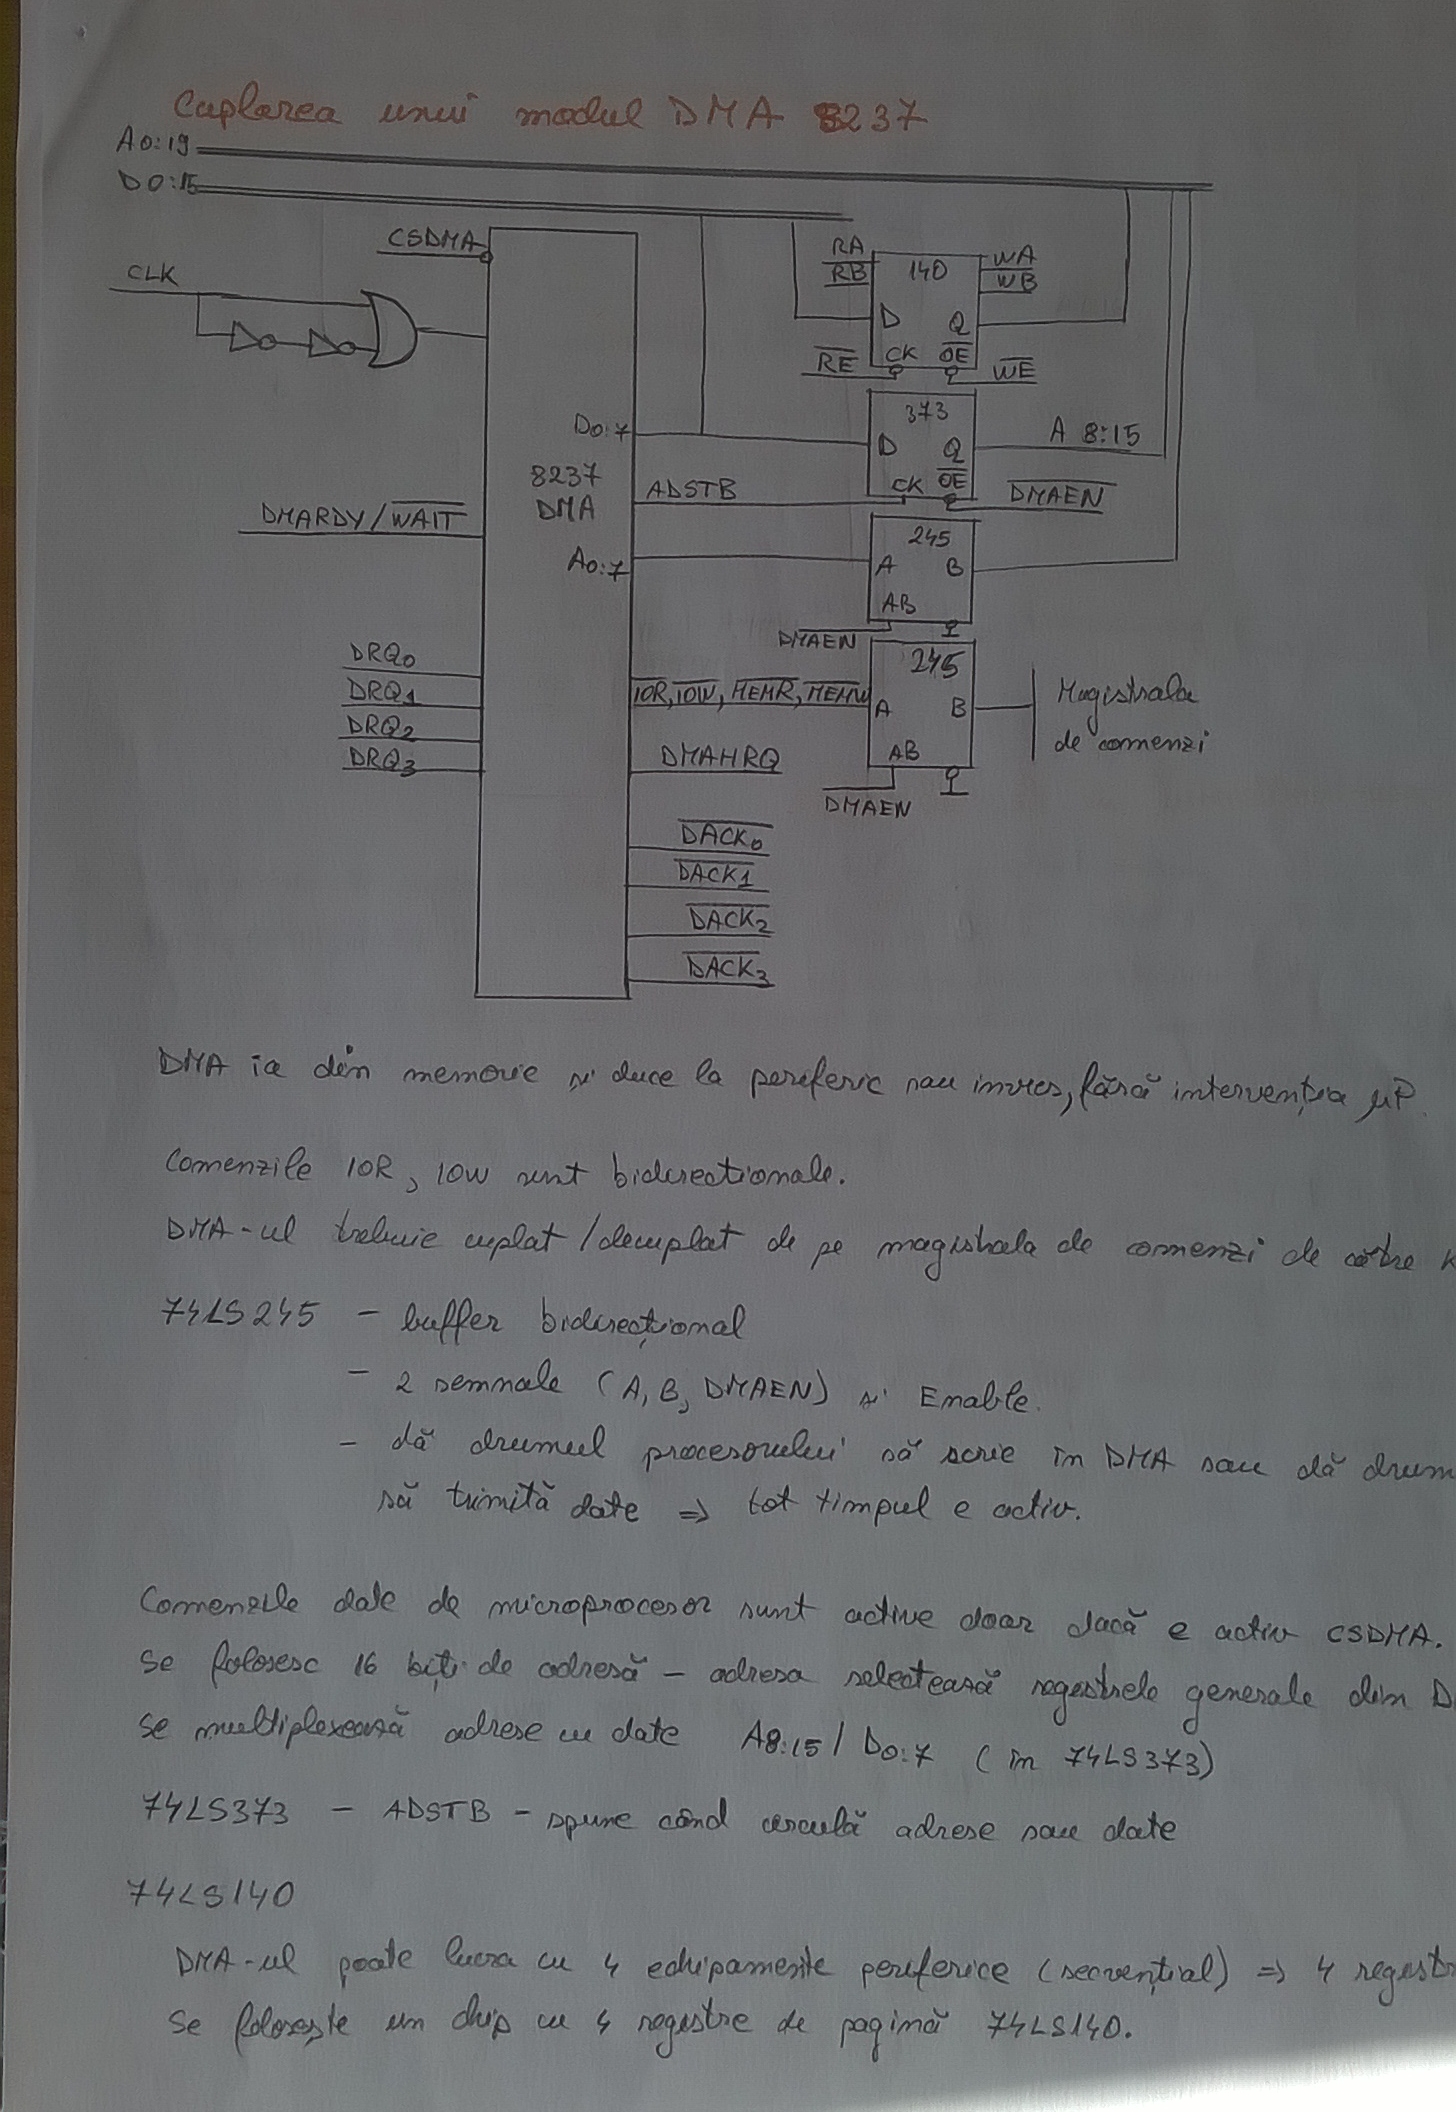 Cuplarea unui modul DMA 8237
A0:19
D0:15
CSDMA
CLK
RA
RB
140
WA
WB
D Q
CK OE
RE
WE
373
D0:7
D Q
A 8:15
8237
DMA
ADSTB
CK OE
DMAEN
DMARDY/WAIT
245
A0:7
A B
AB
DMAEN
DRQ0
DRQ1
DRQ2
DRQ3
245
IOR, IOW, MEMR, MEMW
A B
Magistrala
de comenzi
AB
DMAHRQ
DMAEN
DACK0
DACK1
DACK2
DACK3
DMA ia din memorie și duce la periferic sau invers, fără intervenția μP.
Comenzile IOR, IOW sunt bidirectionale.
DMA-ul trebuie cuplat/decuplat de pe magistrala de comenzi de către
74LS245 - buffer bidirecțional
- 2 semnale (A, B, DMAEN) și Enable.
- dă drumul procesorului să scrie în DMA sau dă drum
să trimită date => tot timpul e activ.
Comenzile date de microprocesor sunt active doar dacă e activ CSDMA.
Se folosesc 16 biți de adresă - adresa selectează registrele generale din D
Se multiplexează adrese cu date A8:15/D0:7 (în 74LS373)
74LS373 - ADSTB - spune când circulă adrese sau date
74LS140
DMA-ul poate lucra cu 4 echipamente periferice (secvențial) => 4 registr
Se folosește un chip cu 4 registre de pagină 74LS140.